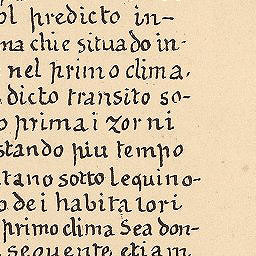 ol predicto in-
na chie situado in-
nel primo clima,
dicto transito so-
o prima i zorni
stando piu tempo
tano sotto lequino-
o dei habitatori
primo clima Sea don-
sequente etiam